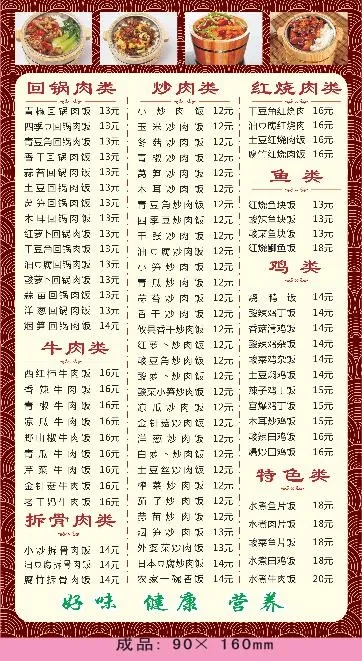 回锅肉类
青椒回锅肉饭 13元
四季豆回锅肉饭 13元
青豆角回锅肉饭 13元
香干回锅肉饭 13元
蒜苔回锅肉饭 13元
土豆回锅肉饭 13元
莴笋回锅肉饭 13元
木耳回锅肉饭 13元
红萝卜回锅肉饭 13元
干豆角回锅肉饭 13元
油豆腐回锅肉饭 13元
酸萝卜回锅肉饭 13元
蒜苗回锅肉饭 13元
洋葱回锅肉饭 13元
烟笋回锅肉饭 14元
牛肉类
西红柿牛肉饭 16元
香辣牛肉饭 16元
青椒牛肉饭 16元
凉瓜牛肉饭 16元
野山椒牛肉饭 16元
青瓜牛肉饭 16元
芹菜牛肉饭 16元
金针菇牛肉饭 16元
老干妈牛肉饭 16元
拆骨肉类
小炒拆骨肉饭 14元
油豆腐拆骨肉饭 14元
腐竹拆骨肉饭 14元
炒肉类
小炒肉饭 12元
玉米炒肉饭 12元
冬菇炒肉饭 12元
青椒炒肉饭 12元
莴笋炒肉饭 12元
木耳炒肉饭 12元
青豆角炒肉饭 12元
四季豆炒肉饭 12元
干张炒肉饭 12元
油豆腐炒肉饭 12元
小笋炒肉饭 12元
青瓜炒肉饭 12元
蒜苔炒肉饭 12元
香干炒肉饭 12元
攸县香干炒肉饭 12元
红萝卜炒肉饭 12元
酸豆角炒肉饭 12元
酸萝卜炒肉饭 12元
酸菜小笋炒肉饭 12元
凉瓜炒肉饭 12元
金针菇炒肉饭 12元
洋葱炒肉饭 12元
白萝卜炒肉饭 12元
土豆丝炒肉饭 12元
榨菜炒肉饭 12元
茄子炒肉饭 12元
蒜苗炒肉饭 12元
烟笋炒肉饭 13元
外婆菜炒肉饭 13元
日本豆腐炒肉饭 14元
农家一碗香饭 14元
红烧肉类
干豆角红烧肉 16元
油豆腐红烧肉 16元
土豆红烧肉饭 16元
腐竹红烧肉饭 16元
鱼类
红烧鱼块饭 13元
酸辣鱼块饭 13元
酸菜鱼块饭 13元
红烧鲫鱼饭 18元
鸡类
14元
酸辣鸡杂饭 14元
香菇滑鸡饭 14元
酸辣鸡杂饭 14元
酸菜鸡杂饭 14元
土豆焖鸡饭 14元
辣子鸡丁饭 15元
宫爆鸡丁饭 15元
木耳炒鸡饭 15元
酸辣田鸡饭 16元
爆炒田鸡饭 16元
特色类
水煮鱼片饭 18元
水煮肉片饭 18元
水煮田鸡饭 18元
水煮牛肉饭 20元
好味 健康 营养
成品: 90× 160mm